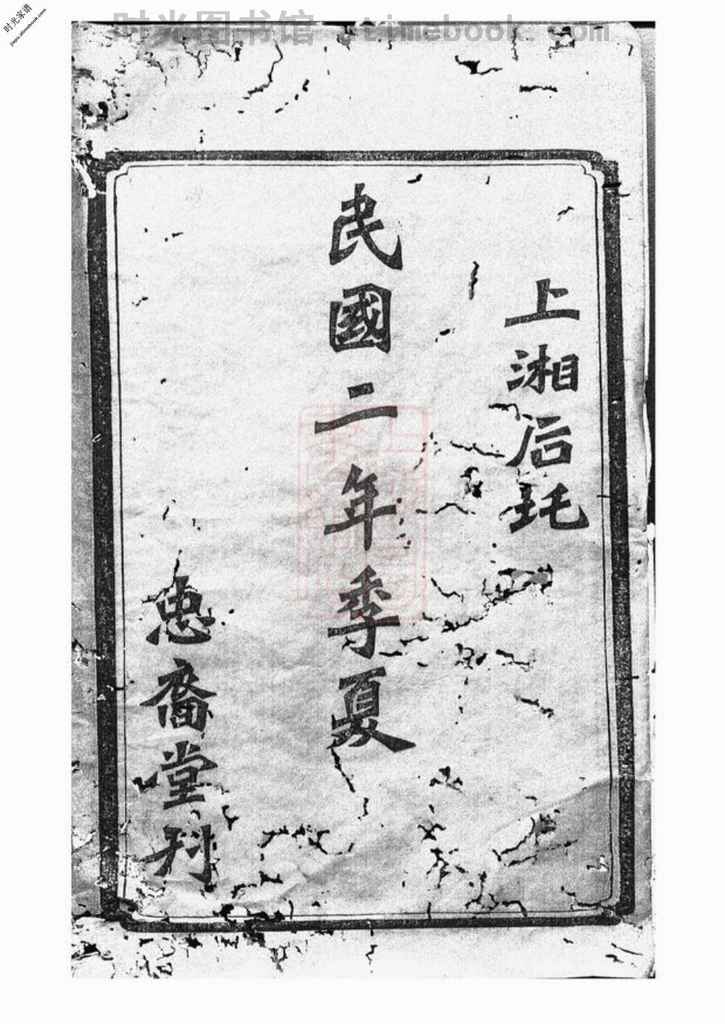 时光图书馆 - timebook.com
时光家谱
上湘后托
民國二年季夏
忠裔堂刊